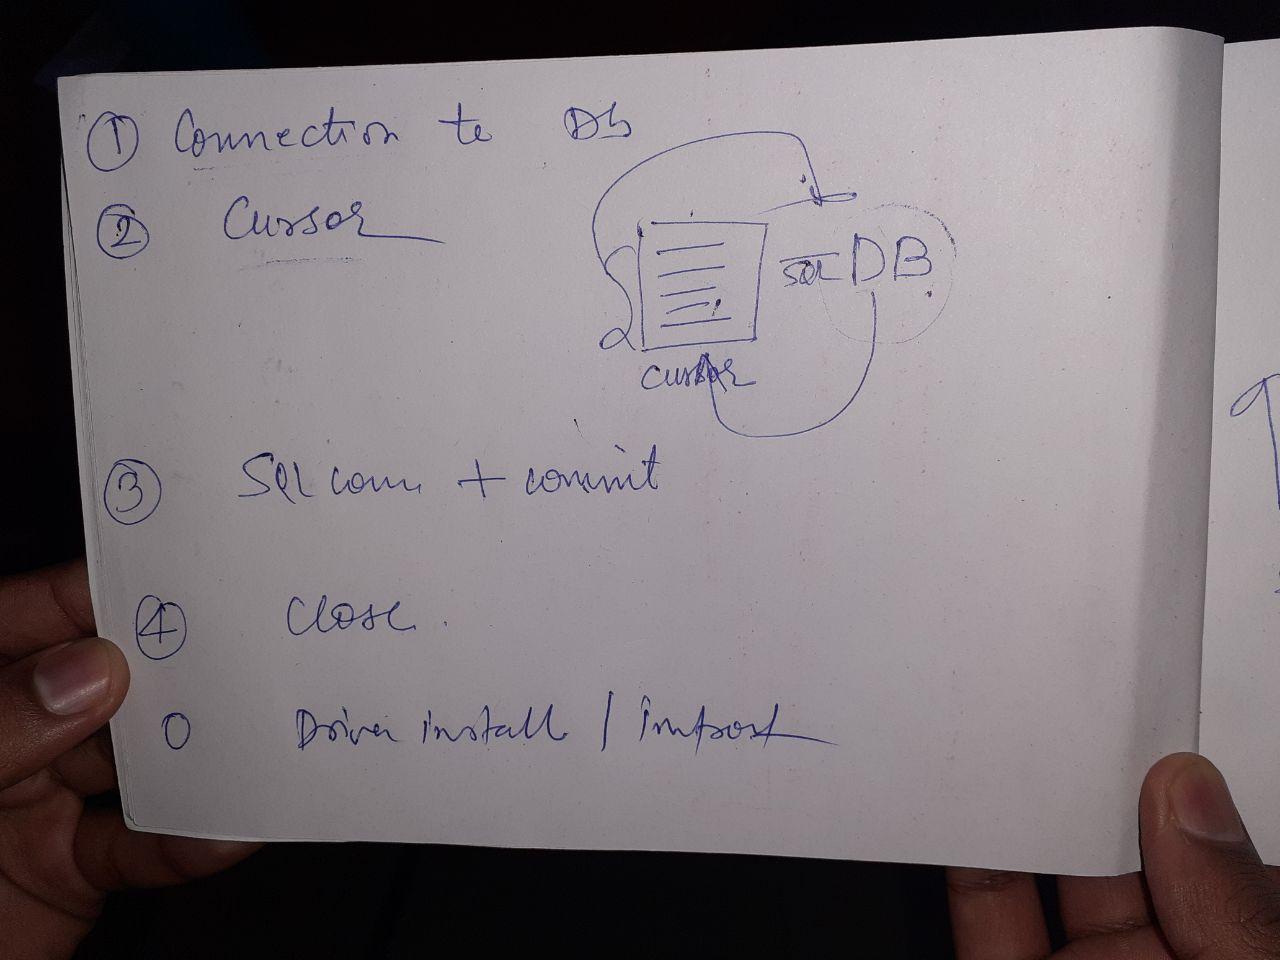 ① Connection to Db
② Cursor
SQL DB
Cursor
③ SQL com + commit
④ Close.
0 Driver install / import